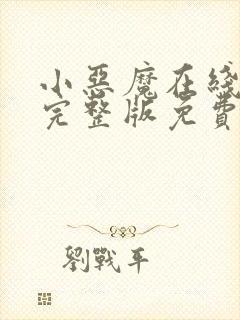 小惡魔在綫
完整版免費
劉戰平